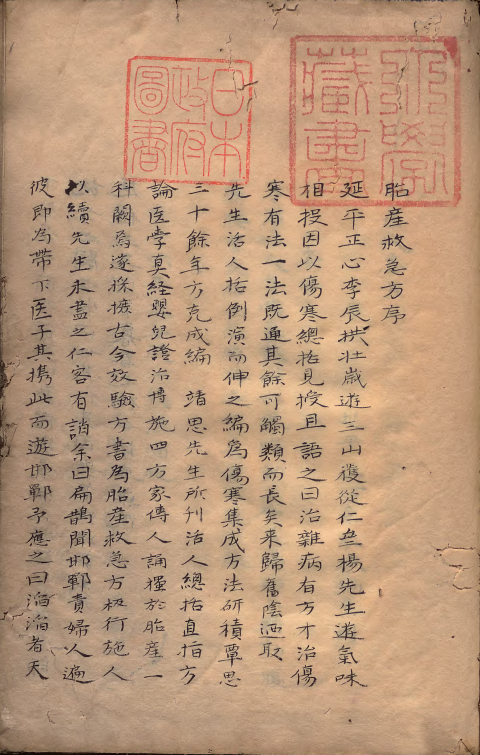 胎産救急方序
延平正心李辰拱壮歳遊三山復從仁斎楊先生遊氣味
相投因以傷寒總括見授且語之曰治雜病有方才治傷
寒有法一法既通其餘可觸類而長矣来歸奮陰迺取
先生活人括例演而伸之編為傷寒集成方法研積覃思
三十餘年方克成編 靖思先生所刊活人總括直指方
論医學真経嬰兒證治博施四方家傳人誦獨於胎産一
科闕為遂採摭古今效驗方書為胎産救急方板行施人
以續先生未盡之仁客有誚余曰扁鵲聞邯鄲貴婦人遍
彼即為帶下医子其携此而遊邯鄲予應之曰滔滔者天
日本政府圖書